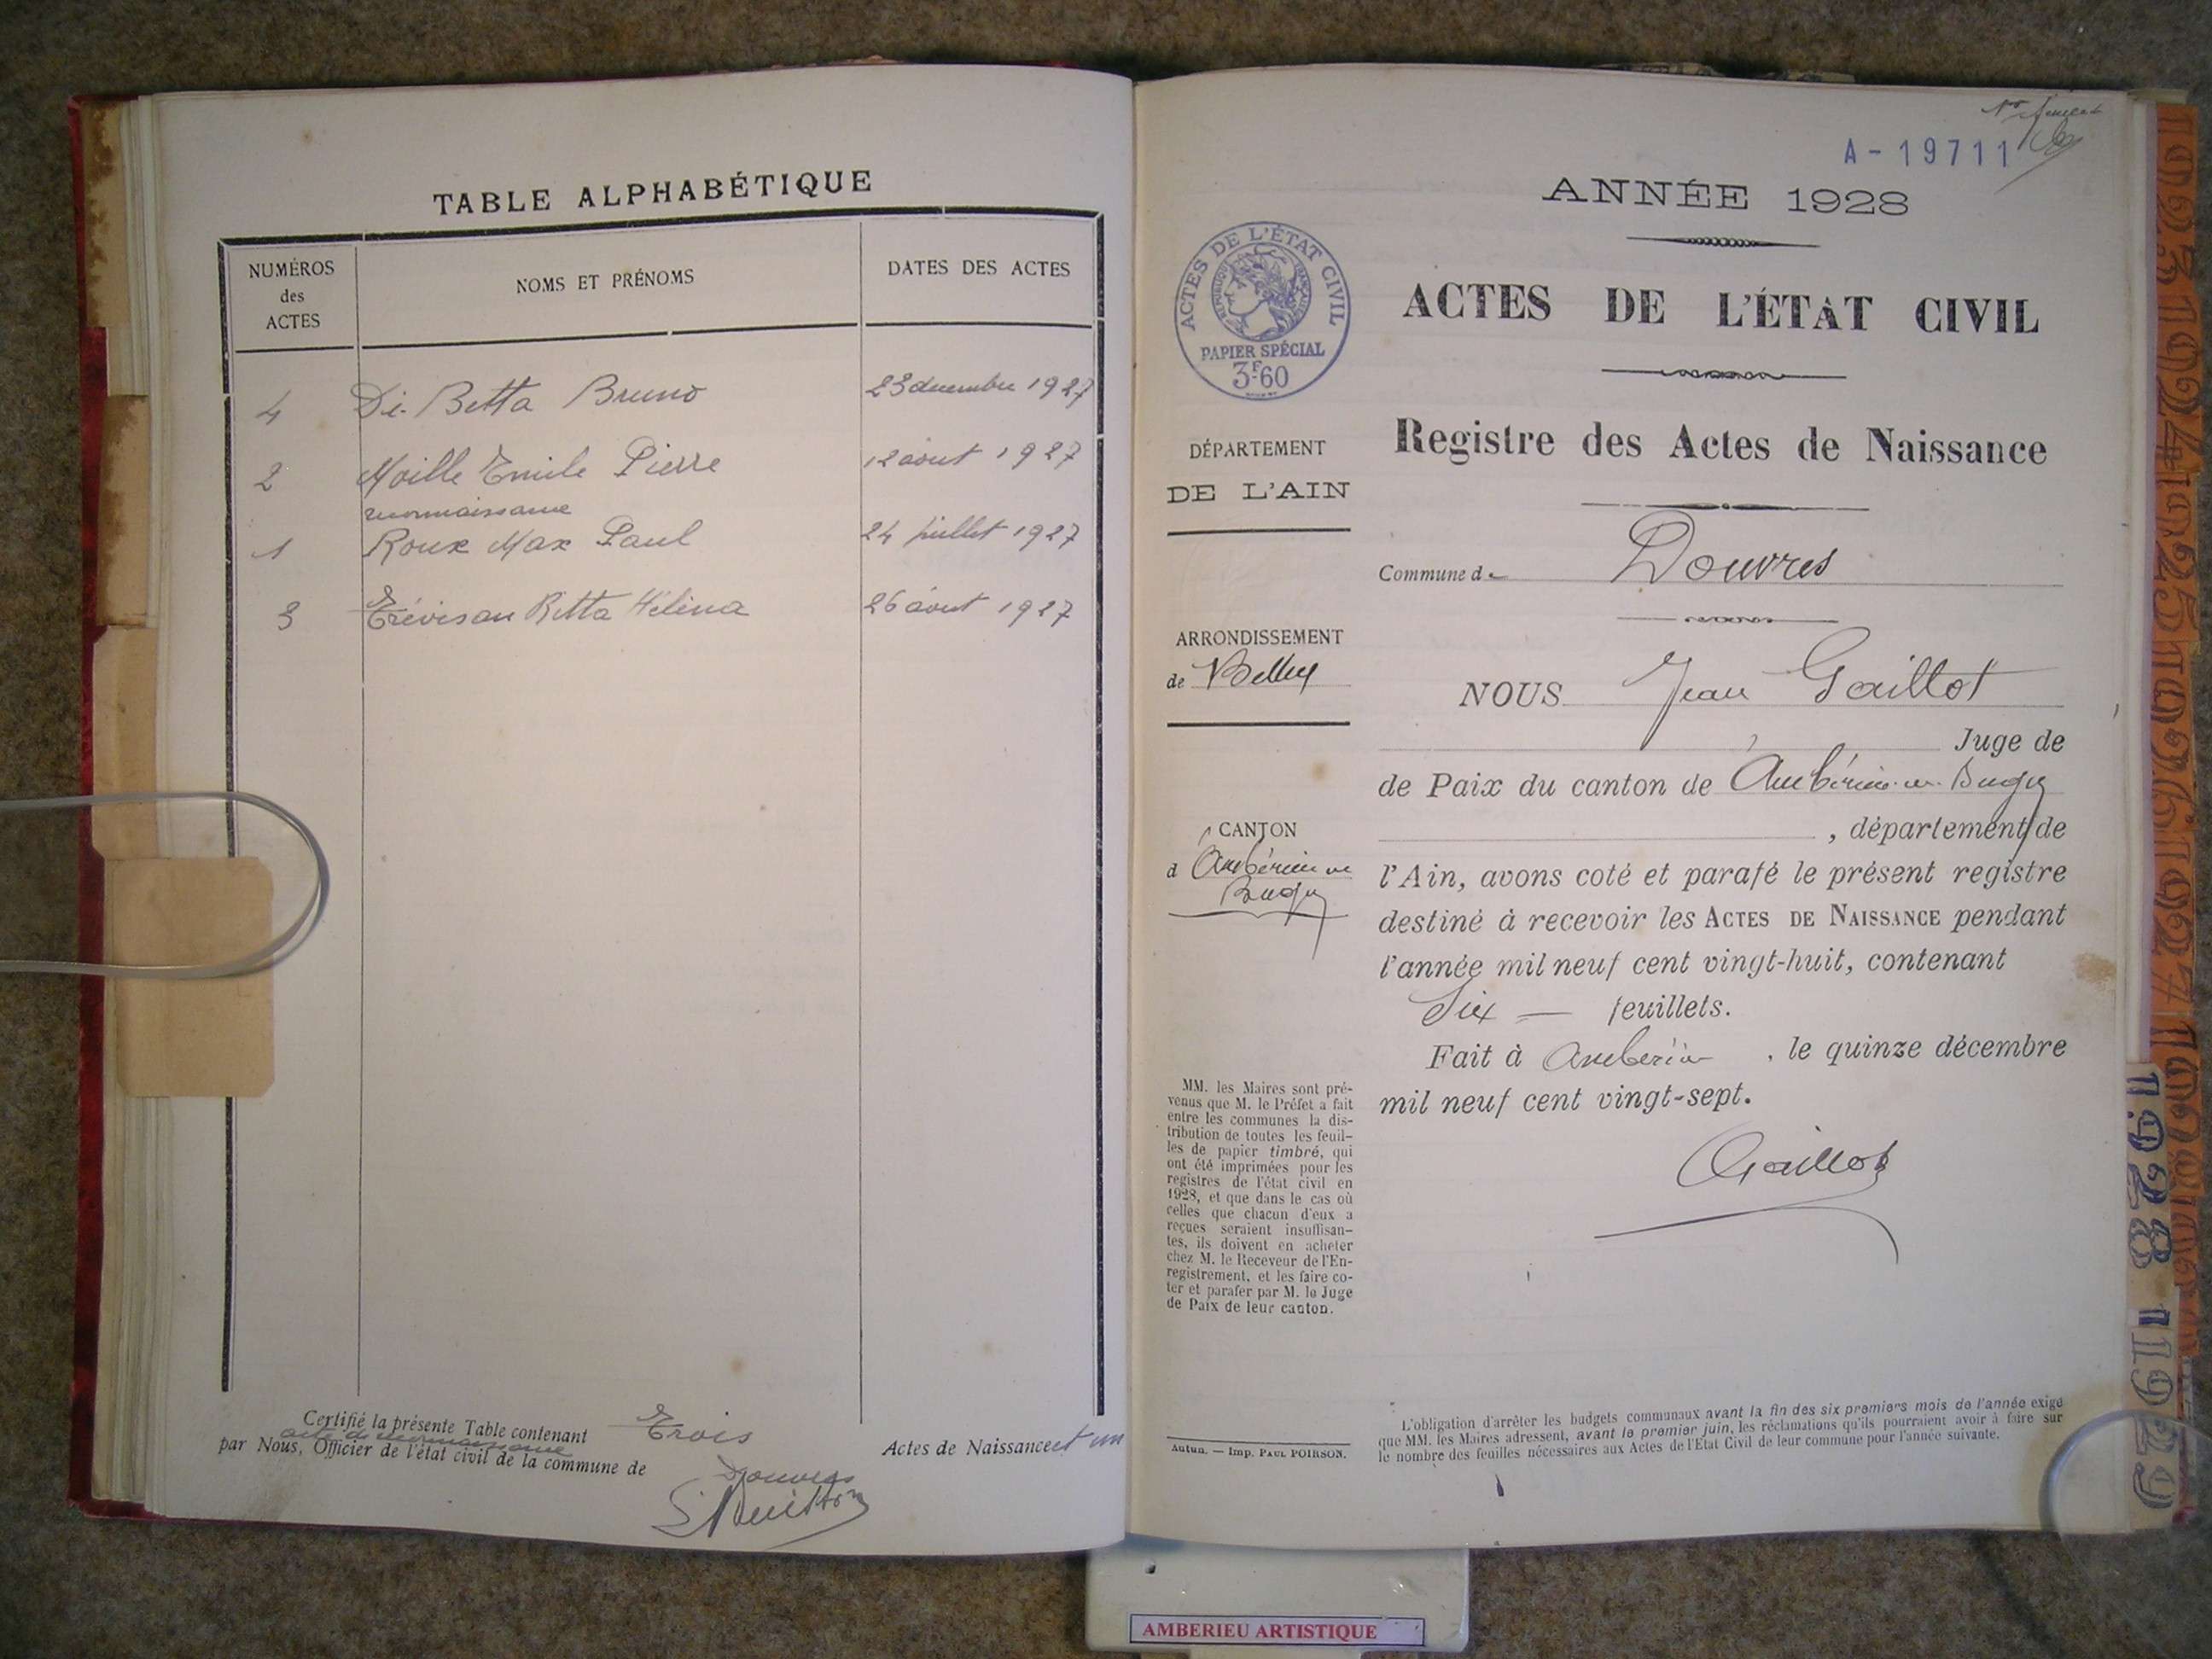 TABLE ALPHABÉTIQUE
NUMÉROS
des
ACTES
NOMS ET PRÉNOMS
DATES DES ACTES
4 Di-Betta Bruno 23 décembre 1927
2 Moille Emile Pierre 12 août 1927
reconnaissance
1 Roux Max Paul 24 juillet 1927
3 Trévisan Ritta Héléna 26 août 1927
Certifié la présente Table contenant Trois Actes de Naissance et un
acte de reconnaissance
par Nous, Officier de l'état civil de la commune de
Douvres
A - 19711
ANNÉE 1928
ACTES DE L'ÉTAT CIVIL
RÉPUBLIQUE FRANÇAISE
PAPIER SPÉCIAL
3F60
ACTES DE L'ÉTAT CIVIL
Registre des Actes de Naissance
DÉPARTEMENT
DE L'AIN
Commune de Douvres
ARRONDISSEMENT
de Belley
CANTON
d Ambérieu en
Bugey
NOUS Jean Gaillot
Juge de
de Paix du canton de Ambérieu-en-Bugey
, département de
l'Ain, avons coté et parafé le présent registre
destiné à recevoir les ACTES DE NAISSANCE pendant
l'année mil neuf cent vingt-huit, contenant
Six — feuillets.
Fait à Ambérieu , le quinze décembre
mil neuf cent vingt-sept.
Gaillot
MM. les Maires sont pré-
venus que M. le Préfet a fait
entre les communes la dis-
tribution de toutes les feuil-
les de papier timbré, qui
ont été imprimées pour les
registres de l'état civil en
1928, et que dans le cas où
celles que chacun d'eux a
reçues seraient insuffisan-
tes, ils doivent en acheter
chez M. le Receveur de l'En-
registrement, et les faire co-
ter et parafer par M. le Juge
de Paix de leur canton.
Autun. — Imp. PAUL POIRSON.
L'obligation d'arrêter les budgets communaux avant la fin des six premiers mois de l'année exige
que MM. les Maires adressent, avant le premier juin, les réclamations qu'ils pourraient avoir à faire sur
le nombre des feuilles nécessaires aux Actes de l'Etat Civil de leur commune pour l'année suivante.
1923 1924 1925 1926 1927
1928 1929
AMBERIEU ARTISTIQUE